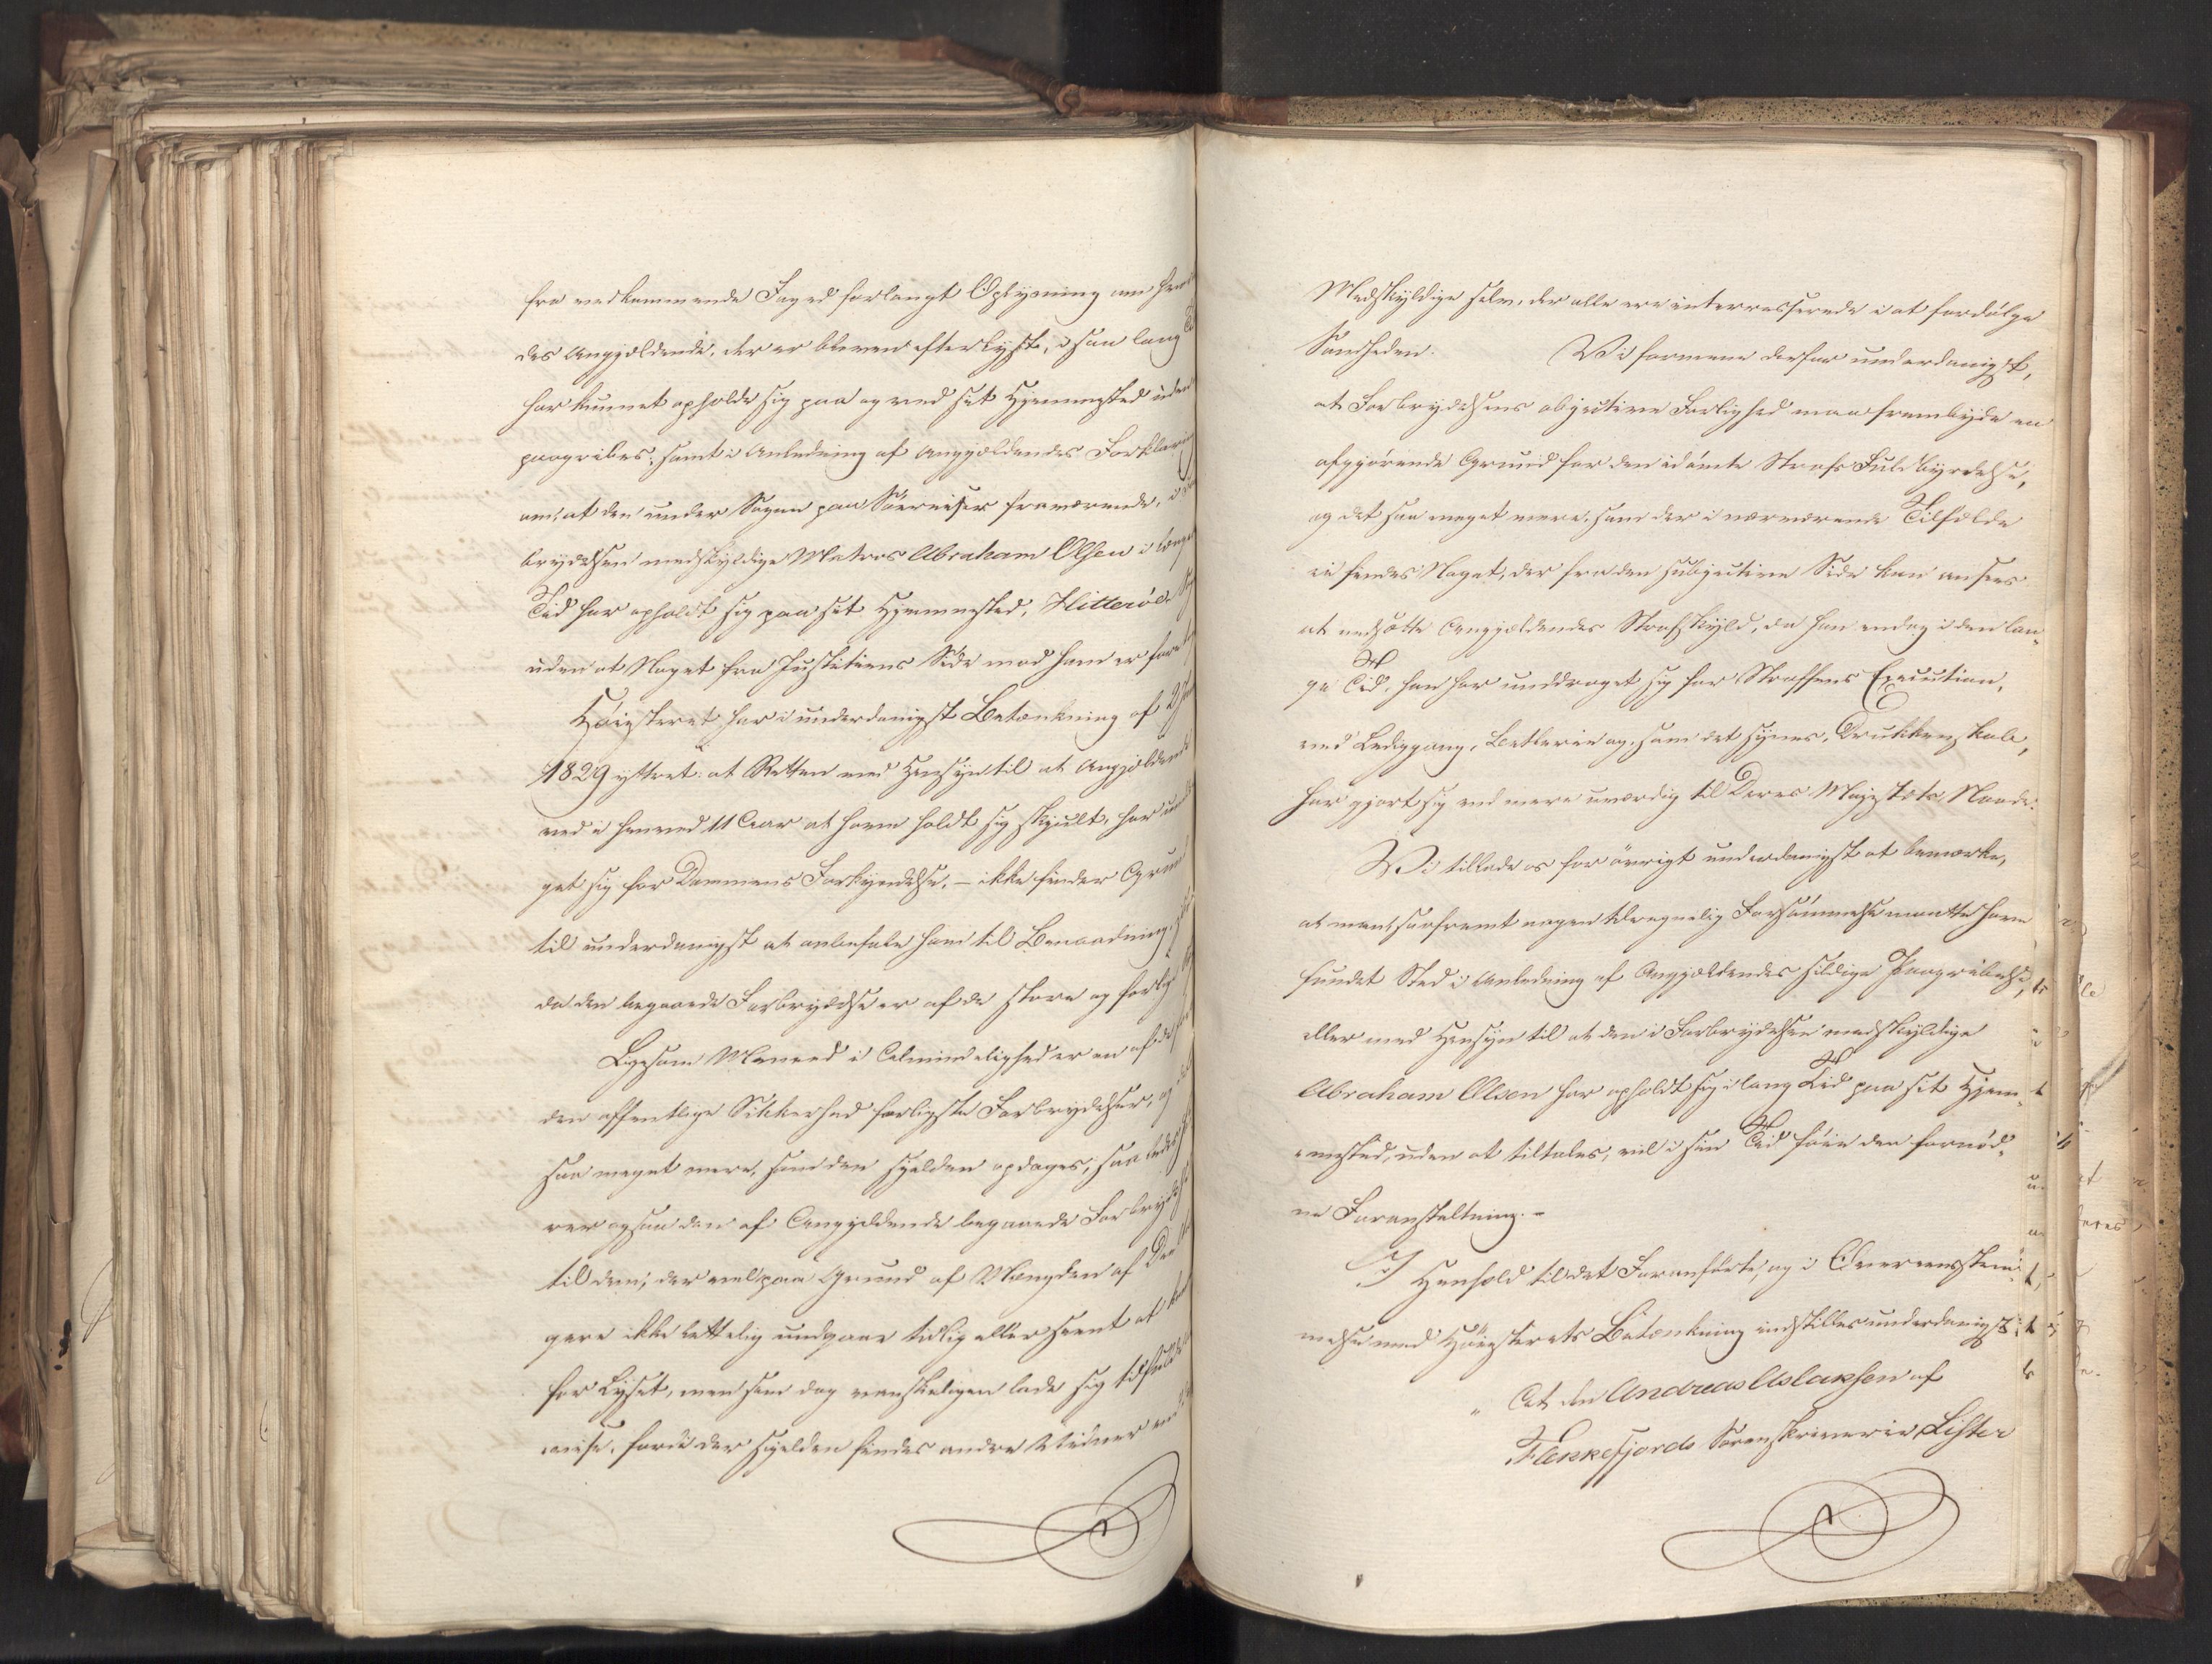 fra vedkommende Foged forlangt Oplysning om hvor-
des Angjældende, der er bleven efterlyst, i saa lang Tid
har kunnet opholde sig paa og ved sit Hjemmested uden
paagribes; samt i Anledning af Angjældendes Forklaring
om, at den under Sagen paa Söereiser fraværende, i
brydelsen medskyldige Matros Abraham Olsen i længere
Tid har opholdt sig paa sit Hjemmested, Hitteröe
uden at Noget fra Justitiens Side mod ham er fore
Höiesteret har i underdanigst Betænkning af 2
1829 yttret: at Retten med Hensyn til at Angjældende
ved i henved 11 Aar at have holdt sig skjult, har und
get sig for Dommens Forkyndelse, – ikke finder Grund
til underdanigst at anbefale ham til Benaadning,
da den begaaede Forbrydelse er af de store og farlige
Ligesom Meened i Almindelighed er en af de for
den offentlige Sikkerhed farligste Forbrydelser, og
saa meget mere, som den sjelden opdages; saa
rer ogsaa den af Angjeldende begaaede Forbrydelse
til dem, der vel paa Grund af Mængden af
gere ikke lettelig undgaae tidlig eller seent at
for Lyset, men som dog vanskeligen lade sig
vise, fordi der sjelden findes andre Vidner end
Medskyldige selv, der alle ere interesserede i at fordölge
Sandheden. Vi formene derfor underdanigst,
at Forbrydelsens objective Farlighed maa frembyde en
afgjörende Grund for den idömte Strafs Fuldbyrdelse,
og det saa meget mere, som der i nærværende Tilfælde
ei findes Noget, der fra den subjective Side kan ansees
at nedsætte Angjældendes Strafskyld, da han endog i den lan-
ge Tid, han har unddraget sig for Straffens Execution,
ved Lediggang, Betlerie og, som det synes, Drukkenskab,
har gjort sig end mere uværdig til Deres Majestæts Naade.
Vi tillade os for övrigt underdanigst at bemærke,
at man, saafremt nogen tilregnelig Forsömmelse maatte have
fundet Sted i Anledning af Angjældendes sildige Paagribelse,
eller med Hensyn til at den i Forbrydelsen medskyldige
Abraham Olsen har opholdt sig i lang Tid paa sit Hjem-
mested, uden at tiltales, vil i sin Tid föie den fornöd-
ne Foranstaltning.-
I Henhold til det Foranförte, og i Overeensstem-
melse med Höiesterets Betænkning indstilles underdanigst:
„At den Andreas Aslaksen af
Flekkefjords Sorenskriverie Lister